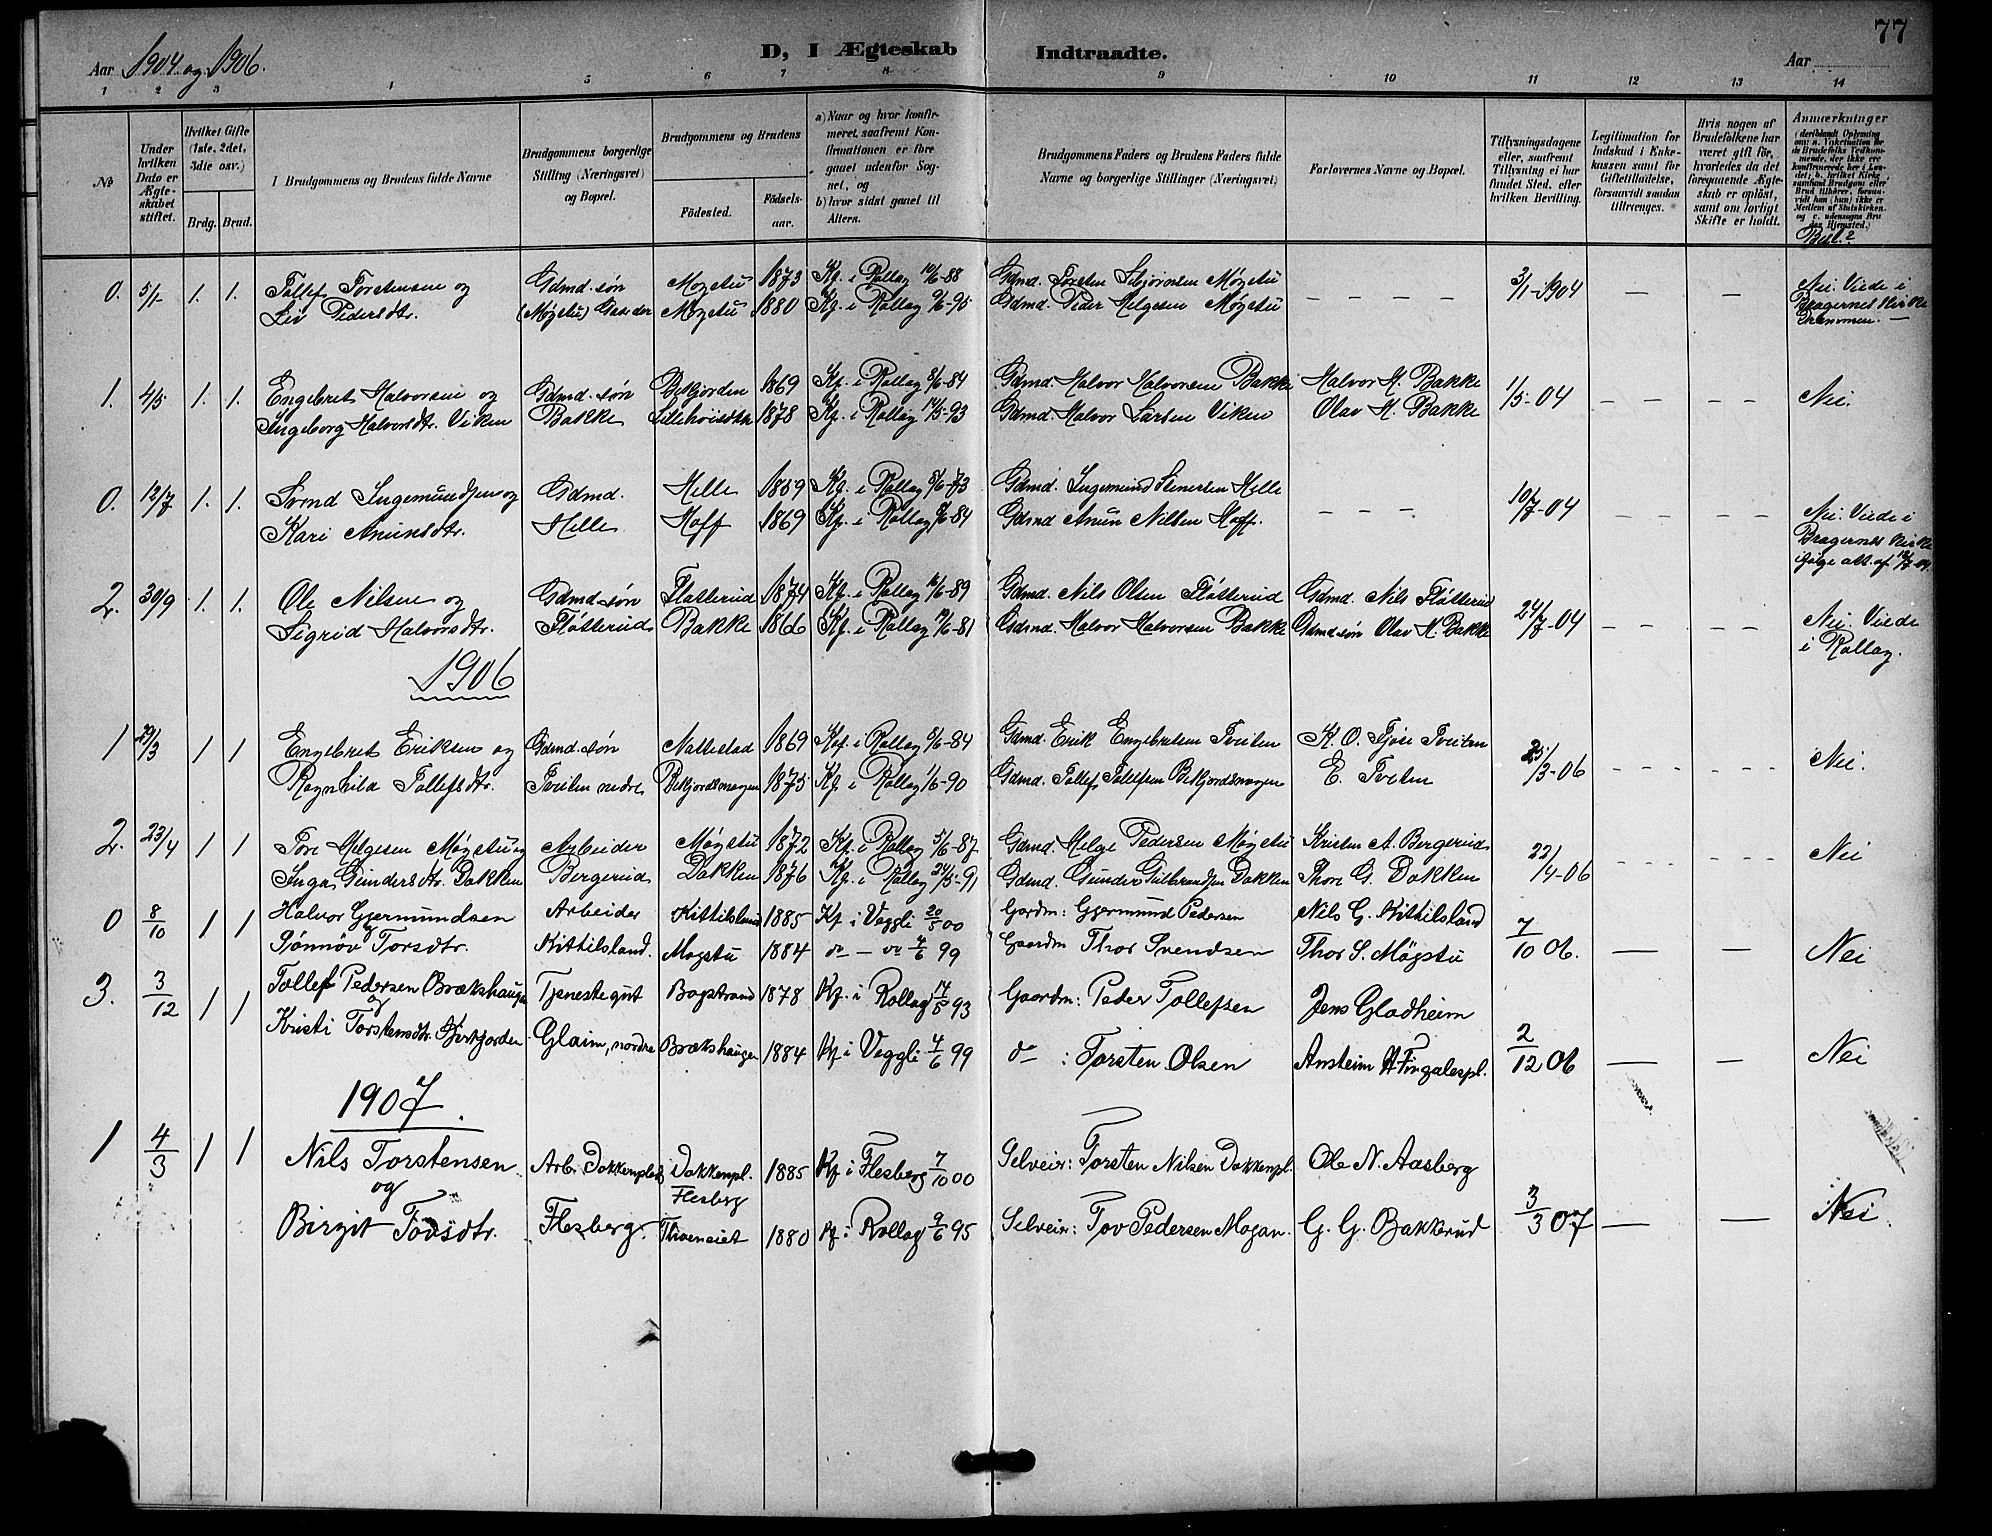 77
Aar 1904 og 1906.
D, I Ægteskab Indtraadte.
Aar
1 2 3 4 5 6 7 8 9 10 11 12 13 14
№
Under hvilken Dato er Ægteskabet stiftet.
Hvilket Gifte (1ste, 2det, 3die osv.)
Brdg. Brud.
Brudgommens og Brudens fulde Navne
Brudgommens borgerlige Stilling (Næringsvei) og Bopæl.
Brudgommens og Brudens
Födested. Födselsaar.
a) Naar og hvor konfirmeret, saafremt Konfirmationen er foregaaet udenfor Sognet, og
b) hvor sidst gaaet til Alters.
Brudgommens Faders og Brudens Faders fulde Navne og borgerlige Stillinger (Næringsvei)
Forlovernes Navne og Bopæl.
Tillysningsdagene eller, saafremt Tillysning ei har fundet Sted, efter hvilken Bevilling.
Legitimation for Indskud i Enkekassen samt for Giftetilladelse, forsaavidt saadan tiltrænges.
Hvis nogen af Brudefolkene har været gift för, hvorledes da det foregaaende Ægteskab er oplöst, samt om lovligt Skifte er holdt.
Anmærkninger
0. 5/1 1. 1. Tollef Torstensen og Gdmd. søn Mogstu 1873 Kf. i Rollag 10/6-88 Gdmd. Torsten Møgstu 3/1-1904 Nei. Viede i
Liv Pedersdtr. (Møgstu) Mogstu 1880 Kf. i Rollag 9/6-95 Gdmd. Peder Helgesen Møgstu Bragernes Kirke
Drammen.
1. 4/5 1. 1. Engebret Halvorsen og Gdmd. søn Bekjorden 1869 Kf. i Rollag 8/6-84 Gdmd. Halvor Halvorsen Bakke Halvor H. Bakke 1/5-04 Nei.
Ingeborg Halvorsdtr. Viken Bakke 1878 Kf. i Rollag 14/5-93 Gdmd. Halvor Larsen Viken Olav H. Bakke
0. 12/7 1. 1. Ingemundsen og Gdmd. Helle 1859 Kf. i Rollag 8/6-73 Gdmd. Ingemund Steinersen Helle 10/7-04 Nei. Viede i
Kari Anunsdtr. Helle Hoff 1869 Kf. i Rollag 8/6-84 Gdmd. Anun Nilsen Hoff. Bragernes Kirke
ifølge att. af 12/7 04.
2. 30/9 1. 1. Ole Nilsen og Gdmd. søn Flåtterud 1874 Kf. i Rollag 16/6-89 Gdmd. Nils Olsen Fløtterud Gdmd. Nils Fløtterud 24/7-04 Nei. Viede
Sigrid Halvorsdtr. Fløtterud Bakke 1866 Kf. i Rollag 19/6-81 Gdmd. Halvor Halvorsen Bakke Gdmd. søn Olav H. Bakke i Rollag.
1906
1 29/3 1 1 Engebret Eriksen og Gdmd. søn Nattestad 1869 Kof. i Rollag 8/6-84 Gdmd. Erik Engebretsen Tveiten K. O. Fjøse Tveiten 25/3-06 Nei.
Ragnhild Tollefsdtr. Tveiten nedre Bekjordsmogen 1875 Kf. i Rollag 1/6-90 Gdmd. Tollef Tollefsen Bekjordsmogen E. Tveiten
2. 23/4 1 1 Tore Helgesen Møgstu og Arbeider Møgstu 1872 Kf. i Rollag 5/6-87 Gdmd. Helge Pedersen Møgstu Kristen A. Bergerud 22/4-06 Nei
Inga Gundersdtr. Dokken Bergerud Dokken 1876 Kf. i Rollag 24/5-91 Gdmd. Gunder Gulbrandsen Dokken Thore G. Dokken
0 8/10 1 1 Halvor Gjermundsen Arbeider Kittilsland 1885 Kf i Veggli 20/5 00 Gordm: Gjermund Pedersen Nils G. Kittilsland 7/10 06. Nei
og
Sönnöv Torsdtr. Kittilsland. Mogstu 1884 do - do 4/6 99 Gaardm Thor Svendsen Thor S. Mögstu
3. 3/12 1 1 Tollef Pedersen Brækshaugen Tjenestegut Bogstrand 1878 Kf. i Rollag 14/5 93 Gaardm: Peder Tollefsen Jens Gladheim 2/12 06 Nei
og
Kristi Torstensdtr. Glaim, nordre Brækshaugen 1884 Kf i Veggli 4/6 99 do : Torsten Olsen Ansteim
1907
1 4/3 1 1 Nils Torstensen Arb. Dokkenplads Dokkenpl. Flesberg 1885 Kf i Flesberg 7/10 00 Selveier: Torsten Nilsen Dokkenpl. Ole N. Aasberg 3/3 07 Nei.
og
Birgit Tovsdtr. Flesberg. 1880 Kf. i Rollag 9/6 95 Selveier: Tov Pedersen Mogan. G. G. Bakkerud